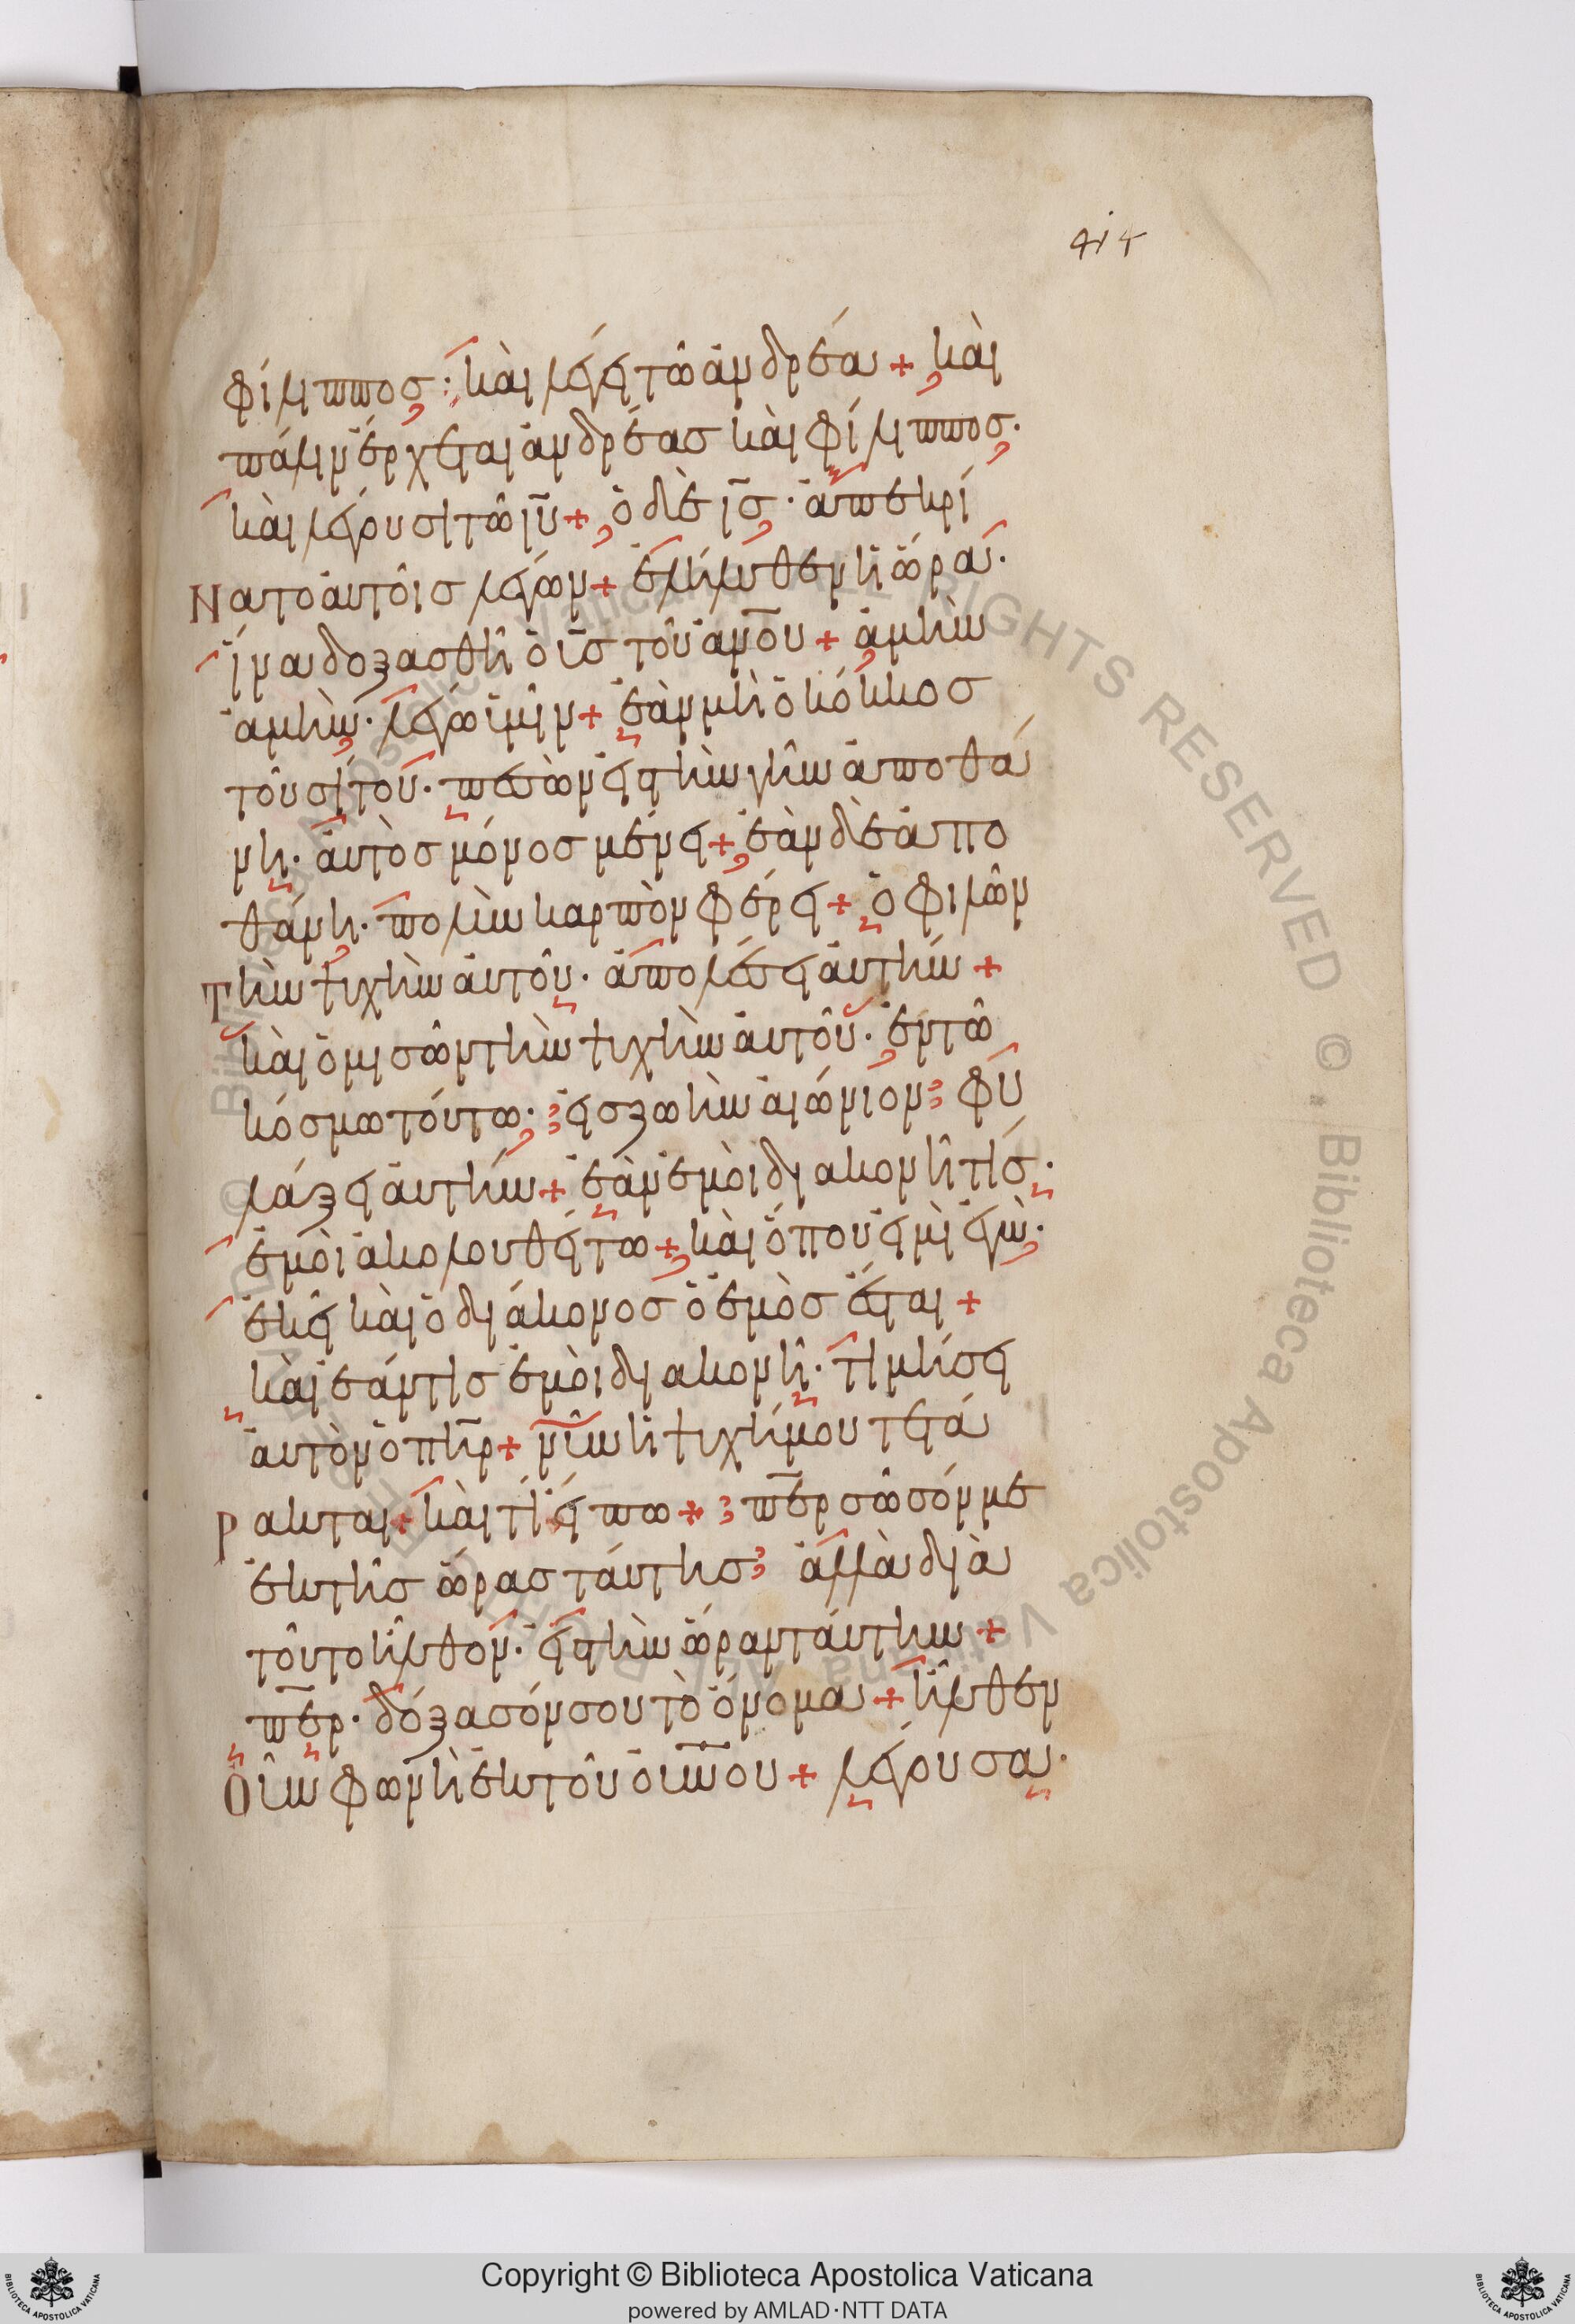 414
φίλιππος· καὶ λέγει τῶ ἀνδρέα + καὶ
πάλιν ἔρχεται ἀνδρέας καὶ φίλιππος·
καὶ λέγουσι τῶ ιυ + ὁ δὲ ις· ἀπεκρί
Νατο ἀυτοῖς λέγων + ἐλήλυθεν ἡ ὥρα·
ἵνα δοξασθῆ ὁ υς τοῦ ἀνου + ἀμὴν
ἀμὴν· λέγω ὑμῖν + ἐὰν μὴ ὁ κόκκος
τοῦ σίτου· πεσὼν εἰς τὴν γῆν ἀποθά
νη· ἀυτὸς μόνος μένει + ἐὰν δὲ ἀπο
θάνη· πολὺν καρπὸν φέρει + ὁ φιλῶν
Τὴν ψυχὴν ἀυτοῦ· ἀπολέσει ἀυτήν +
καὶ ὁ μισῶν τὴν ψυχὴν ἀυτοῦ· ἐν τῶ
κόσμω τούτω· εἰς ζωὴν ἀιώνιον φυ
λάξει ἀυτήν + ἐὰν ἐμὸι διακονῆ τίς·
ἐμὸι ἀκολουθείτω + καὶ ὅπου εἰμὶ ἐγὼ·
ἐκεῖ καὶ ὁ διάκονος ὁ ἐμὸς ἔσται +
καὶ ἐάν τις ἐμὸι διακονῆ· τιμήσει
ἀυτὸν ὁ πηρ + νῦν ἡ ψυχή μου τετά
Ρακται + καὶ τί εἴπω + περ σῶσόν με
ἐκ τῆς ὥρας τάυτης ἀλλὰ διὰ
τοῦτο ἦλθον· εἰς τὴν ὥραν τάυτην +
περ· δόξασόν σου τὸ ὄνομα + ἦλθεν
Οὖν φωνὴ ἐκ τοῦ ουνου + λέγουσα·
Copyright © Biblioteca Apostolica Vaticana
powered by AMLAD·NTT DATA